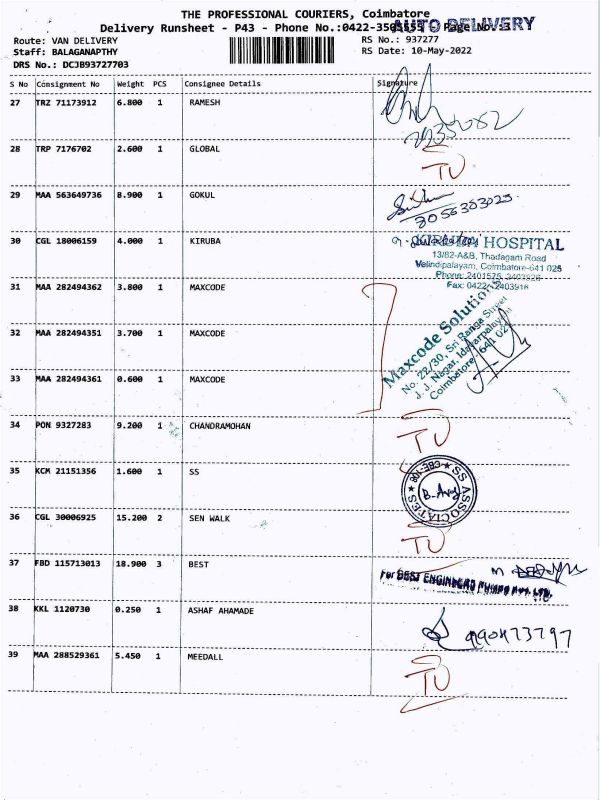 THE PROFESSIONAL COURIERS, Coimbatore
Delivery Runsheet - P43 - Phone No.:0422-3505555 Page No.:3
AUTO DELIVERY
Route: VAN DELIVERY
RS No.: 937277
Staff: BALAGANAPTHY
RS Date: 10-May-2022
DRS No.: DCJB93727703
S No Consignment No Weight PCS Consignee Details Signature
27 TRZ 71173912 6.800 1 RAMESH
28 TRP 7176702 2.600 1 GLOBAL
TU
29 MAA 563649736 8.900 1 GOKUL
8056383023
30 CGL 18006159 4.000 1 KIRUBA
KIRUBA HOSPITAL
13/82-A&B, Thadagam Road
Velandipalayam, Coimbatore-641 025
Phone: 2401575
Fax: 0422-2403916
31 MAA 282494362 3.800 1 MAXCODE
32 MAA 282494351 3.700 1 MAXCODE
33 MAA 282494361 0.600 1 MAXCODE
Maxcode Solutions
No. 22/30, Sri Ranga Street
J. J. Nagar, Idayarpalayam
Coimbatore - 641 025
34 PON 9327283 9.200 1 CHANDRAMOHAN
TU
35 KCM 21151356 1.600 1 SS
SS ASSOCIATES
36 CGL 30006925 15.200 2 SEN WALK
TU
37 FBD 115713013 18.900 3 BEST
For BEST ENGINEERS PUMPS PVT. LTD.
38 KKL 1120730 0.250 1 ASHAF AHAMADE
39 MAA 288529361 5.450 1 MEEDALL
TU